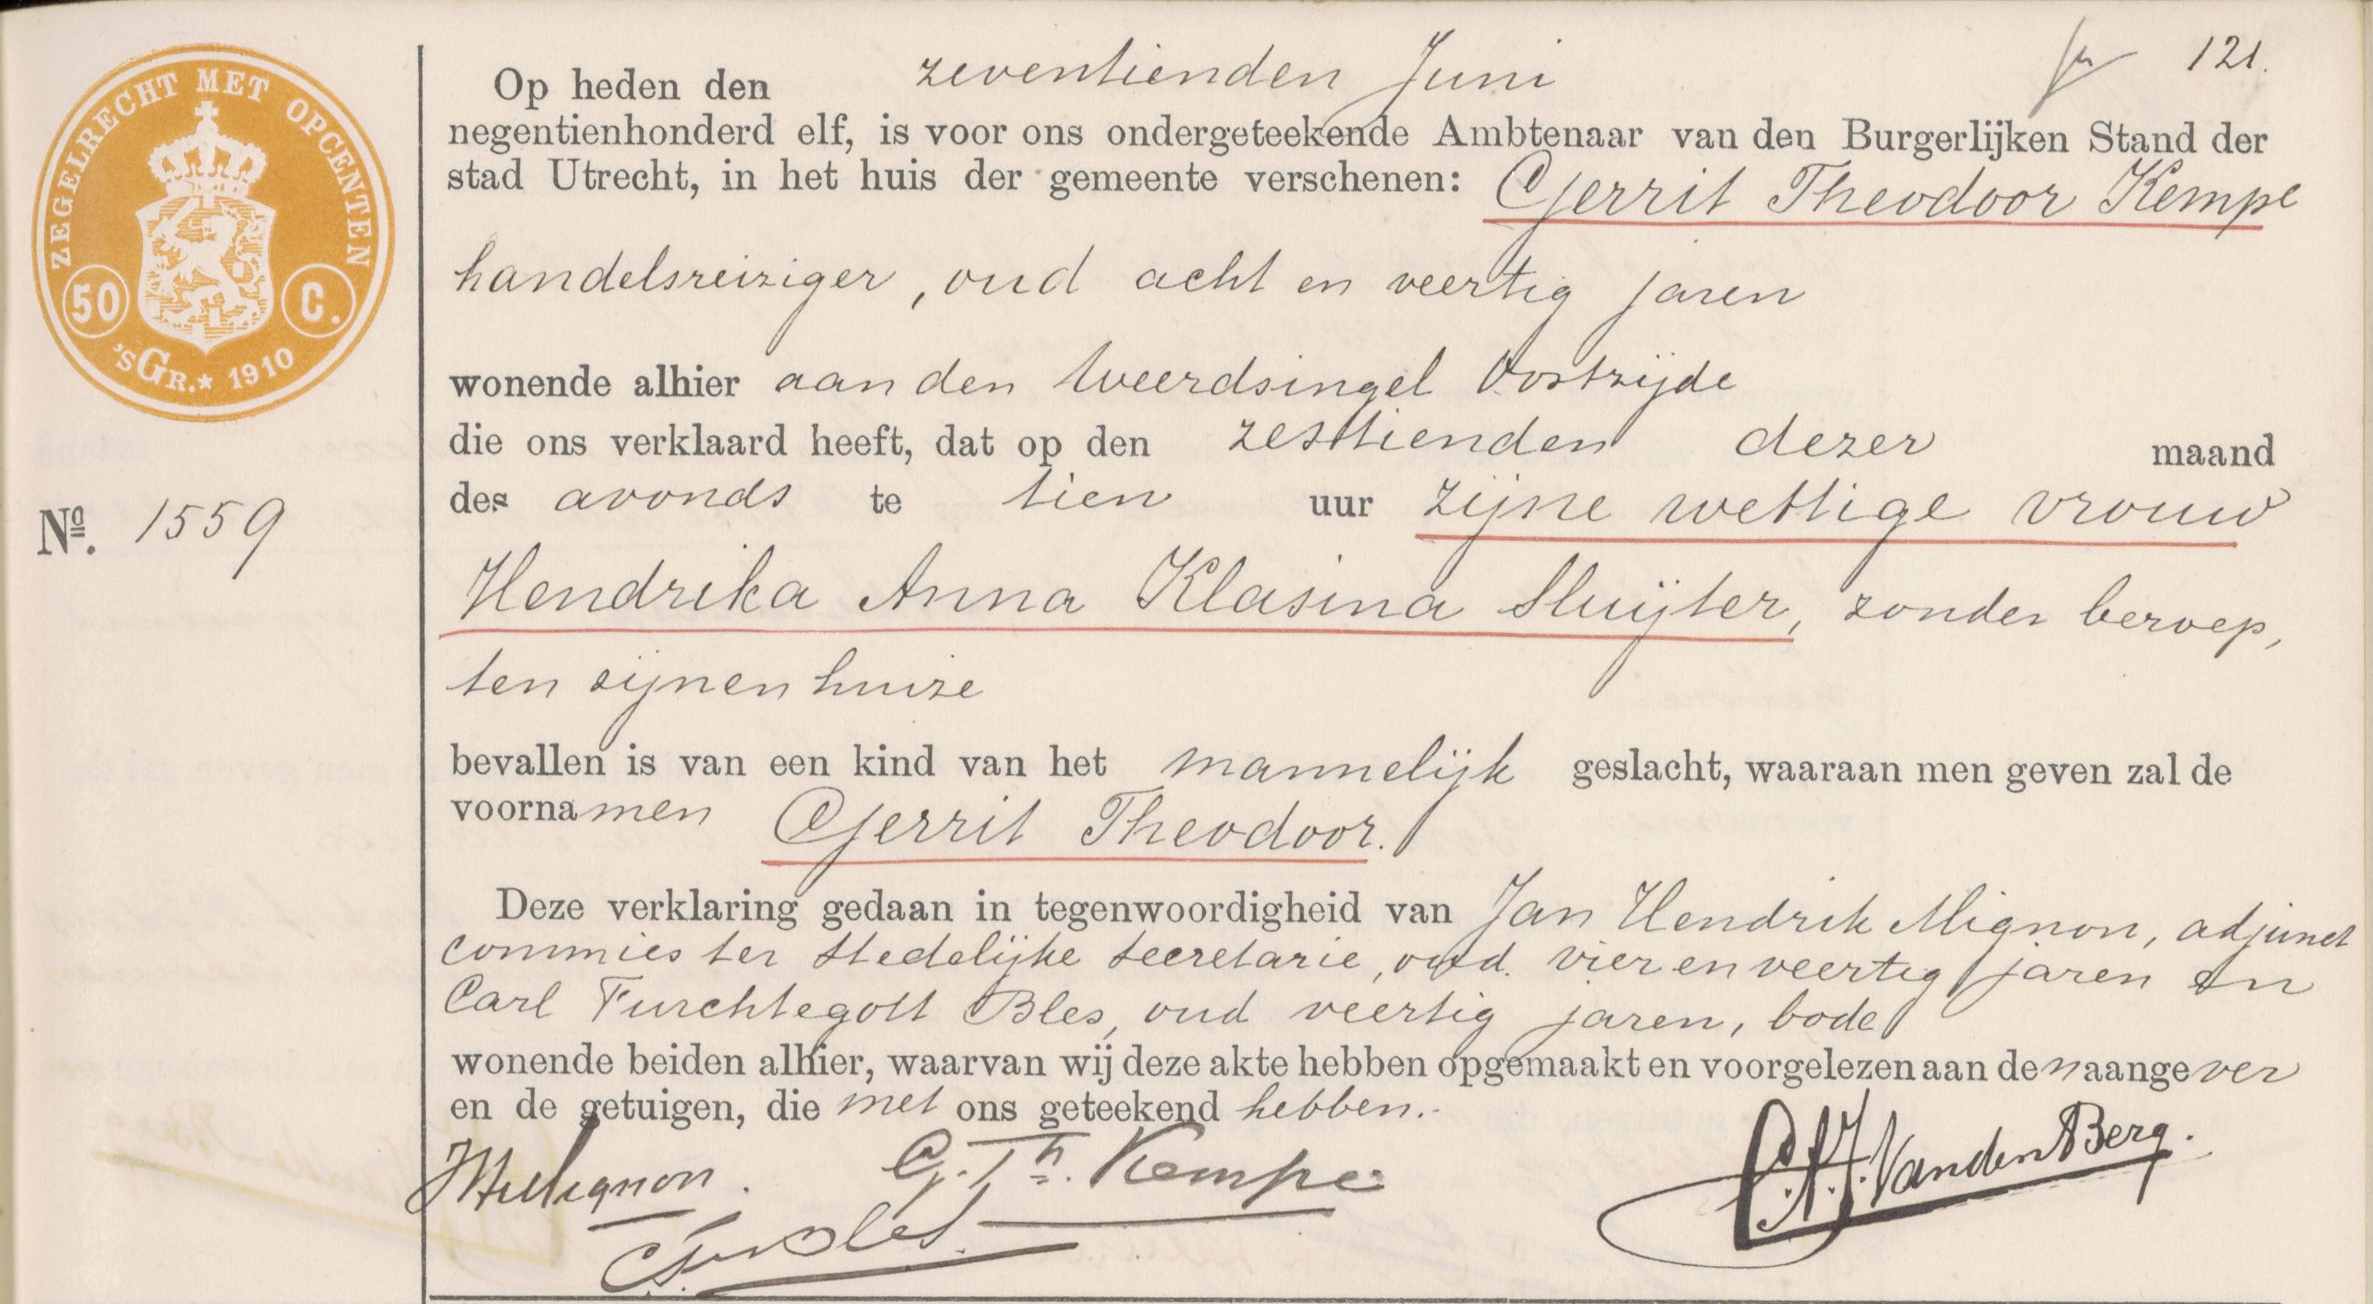 ZEGELRECHT MET OPCENTEN
50 C.
'S GR.* 1910
121.
Op heden den zeventienden Juni
negentienhonderd elf, is voor ons ondergeteekende Ambtenaar van den Burgerlijken Stand der
stad Utrecht, in het huis der gemeente verschenen: Gerrit Theodoor Kempe
handelsreiziger, oud acht en veertig jaren
wonende alhier aan den Weerdsingel Oostzijde
die ons verklaard heeft, dat op den zestienden dezer maand
des avonds te tien uur zijne wettige vrouw
No. 1559
Hendrika Anna Klasina Sluijter, zonder beroep,
ten zijnen huize
bevallen is van een kind van het mannelijk geslacht, waaraan men geven zal de
voornamen Gerrit Theodoor.
Deze verklaring gedaan in tegenwoordigheid van Jan Hendrik Mignon, adjunct
commies ter Stedelijke Secretarie, oud vier en veertig jaren en
Carl Furchtegott Bles, oud veertig jaren, bode
wonende beiden alhier, waarvan wij deze akte hebben opgemaakt en voorgelezen aan den aangever
en de getuigen, die met ons geteekend hebben.
JHMignon. G. Th. Kempe C.A.J. Van den Berg.
CFBles.